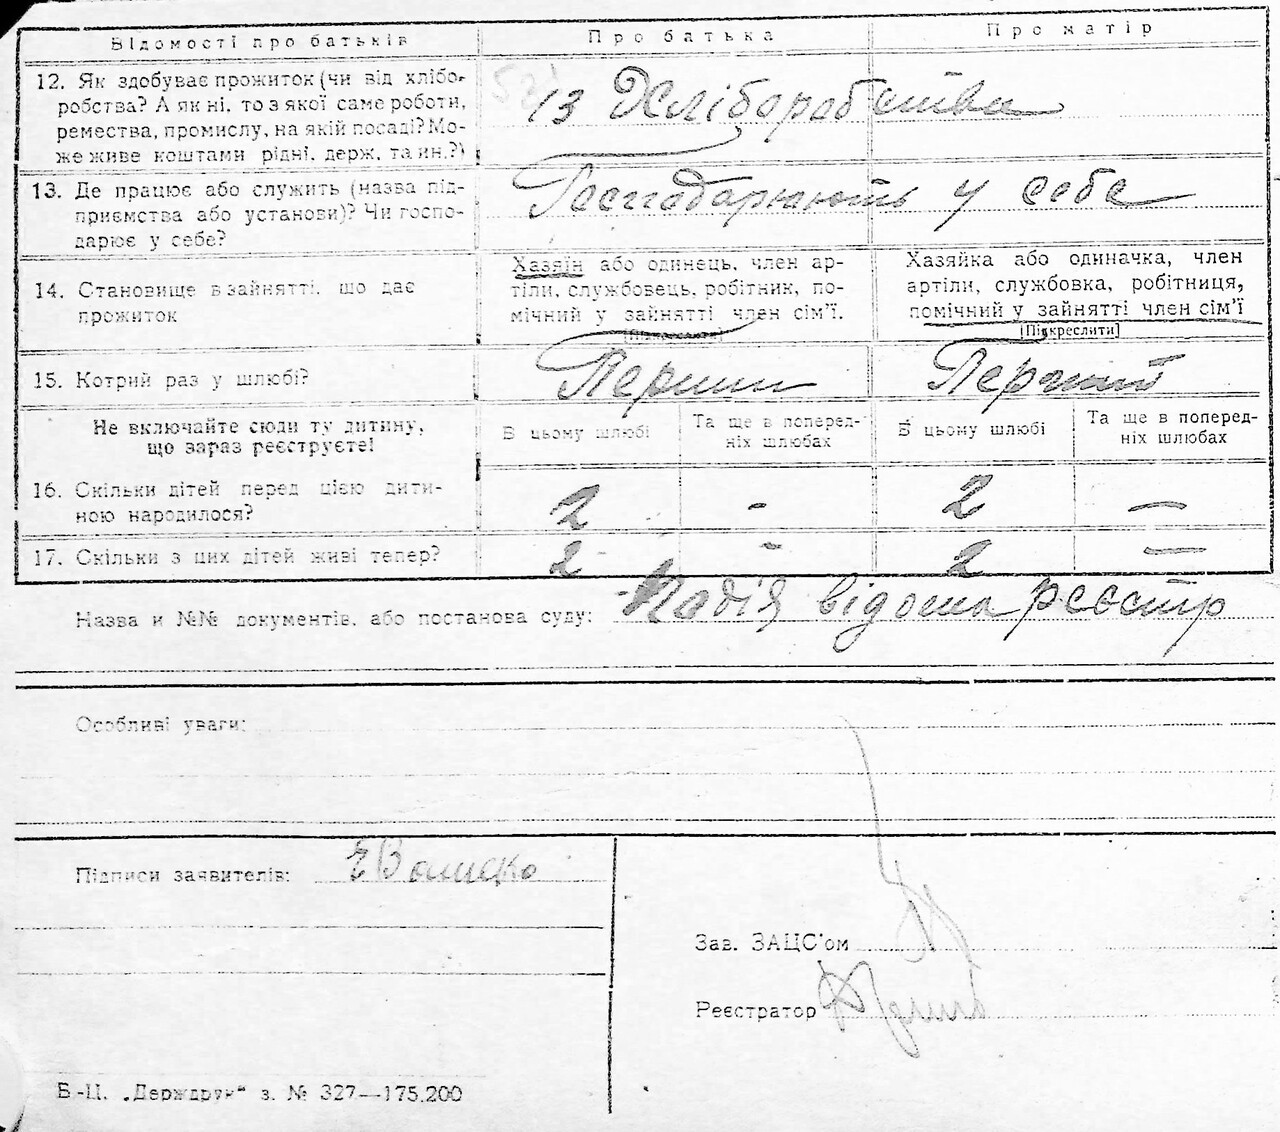 Відомості про батьків Про батька Про матір
12. Як здобуває прожиток (чи від хлібо-
робства? А як ні, то з якої саме роботи,
ремества, промислу, на якій посаді? Мо-
же живе коштами рідні, держ. та ин.?)
13 Хліборобства
13. Де працює або служить (назва під-
приємства або установи)? Чи госпо-
дарює у себе?
Господарюють у себе
14. Становище в зайнятті, що дає
прожиток
Хазяїн або одинець, член ар-
тіли, службовець, робітник, по-
мічний у зайнятті член сім'ї.
[Підкреслити]
Хазяйка або одиначка, член
артіли, службовка, робітниця,
помічний у зайнятті член сім'ї
[Підкреслити]
15. Котрий раз у шлюбі? Перший Перший
Не включайте сюди ту дитину,
що зараз реєструєте!
В цьому шлюбі
Та ще в поперед-
ніх шлюбах
В цьому шлюбі
Та ще в поперед-
ніх шлюбах
16. Скільки дітей перед цією дити-
ною народилося?
2 - 2 —
17. Скільки з цих дітей живі тепер? 2 - 2 —
Назва и №№ документів, або постанова суду: Подія відома реєстр
Особливі уваги:
Підписи заявителів:
Зав. ЗАЦС'ом
Реєстратор
Б.-Ц. „Держдрук“ з. № 327—175.200